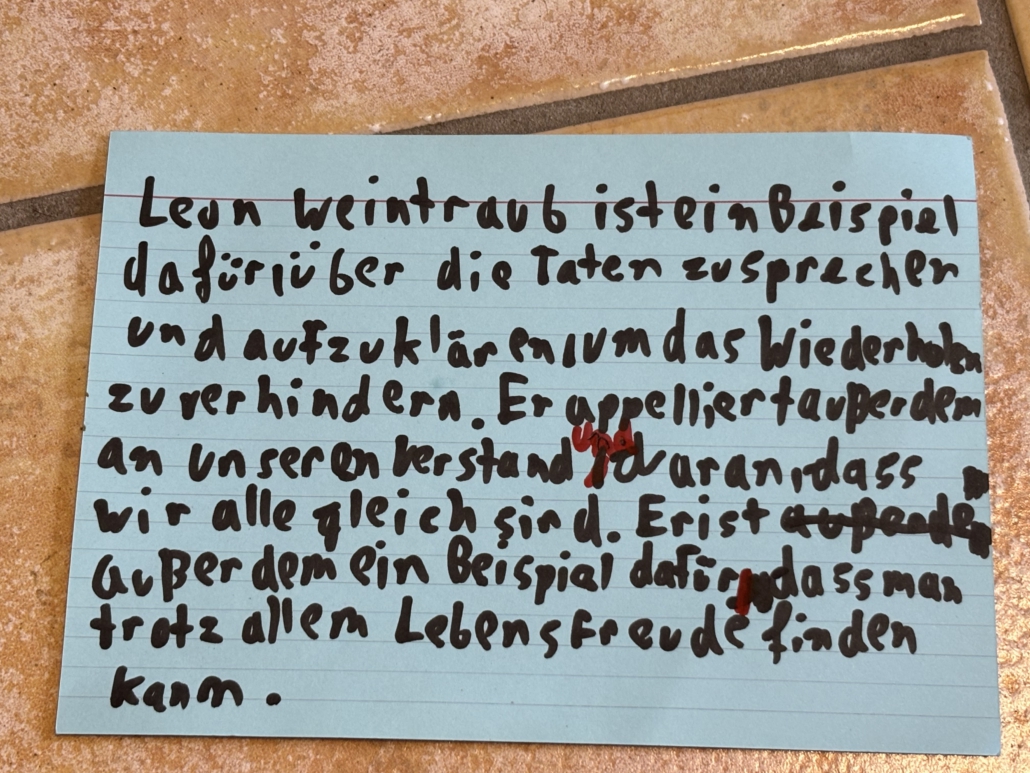 Leon Weintraub ist ein Beispiel
dafür, über die Taten zu sprechen
und aufzuklären, um das Wiederholen
zu verhindern. Er appelliert außerdem
an unseren Verstand und daran, dass
wir alle gleich sind. Er ist
außerdem ein Beispiel dafür, dass man
trotz allem Lebensfreude finden
kann.